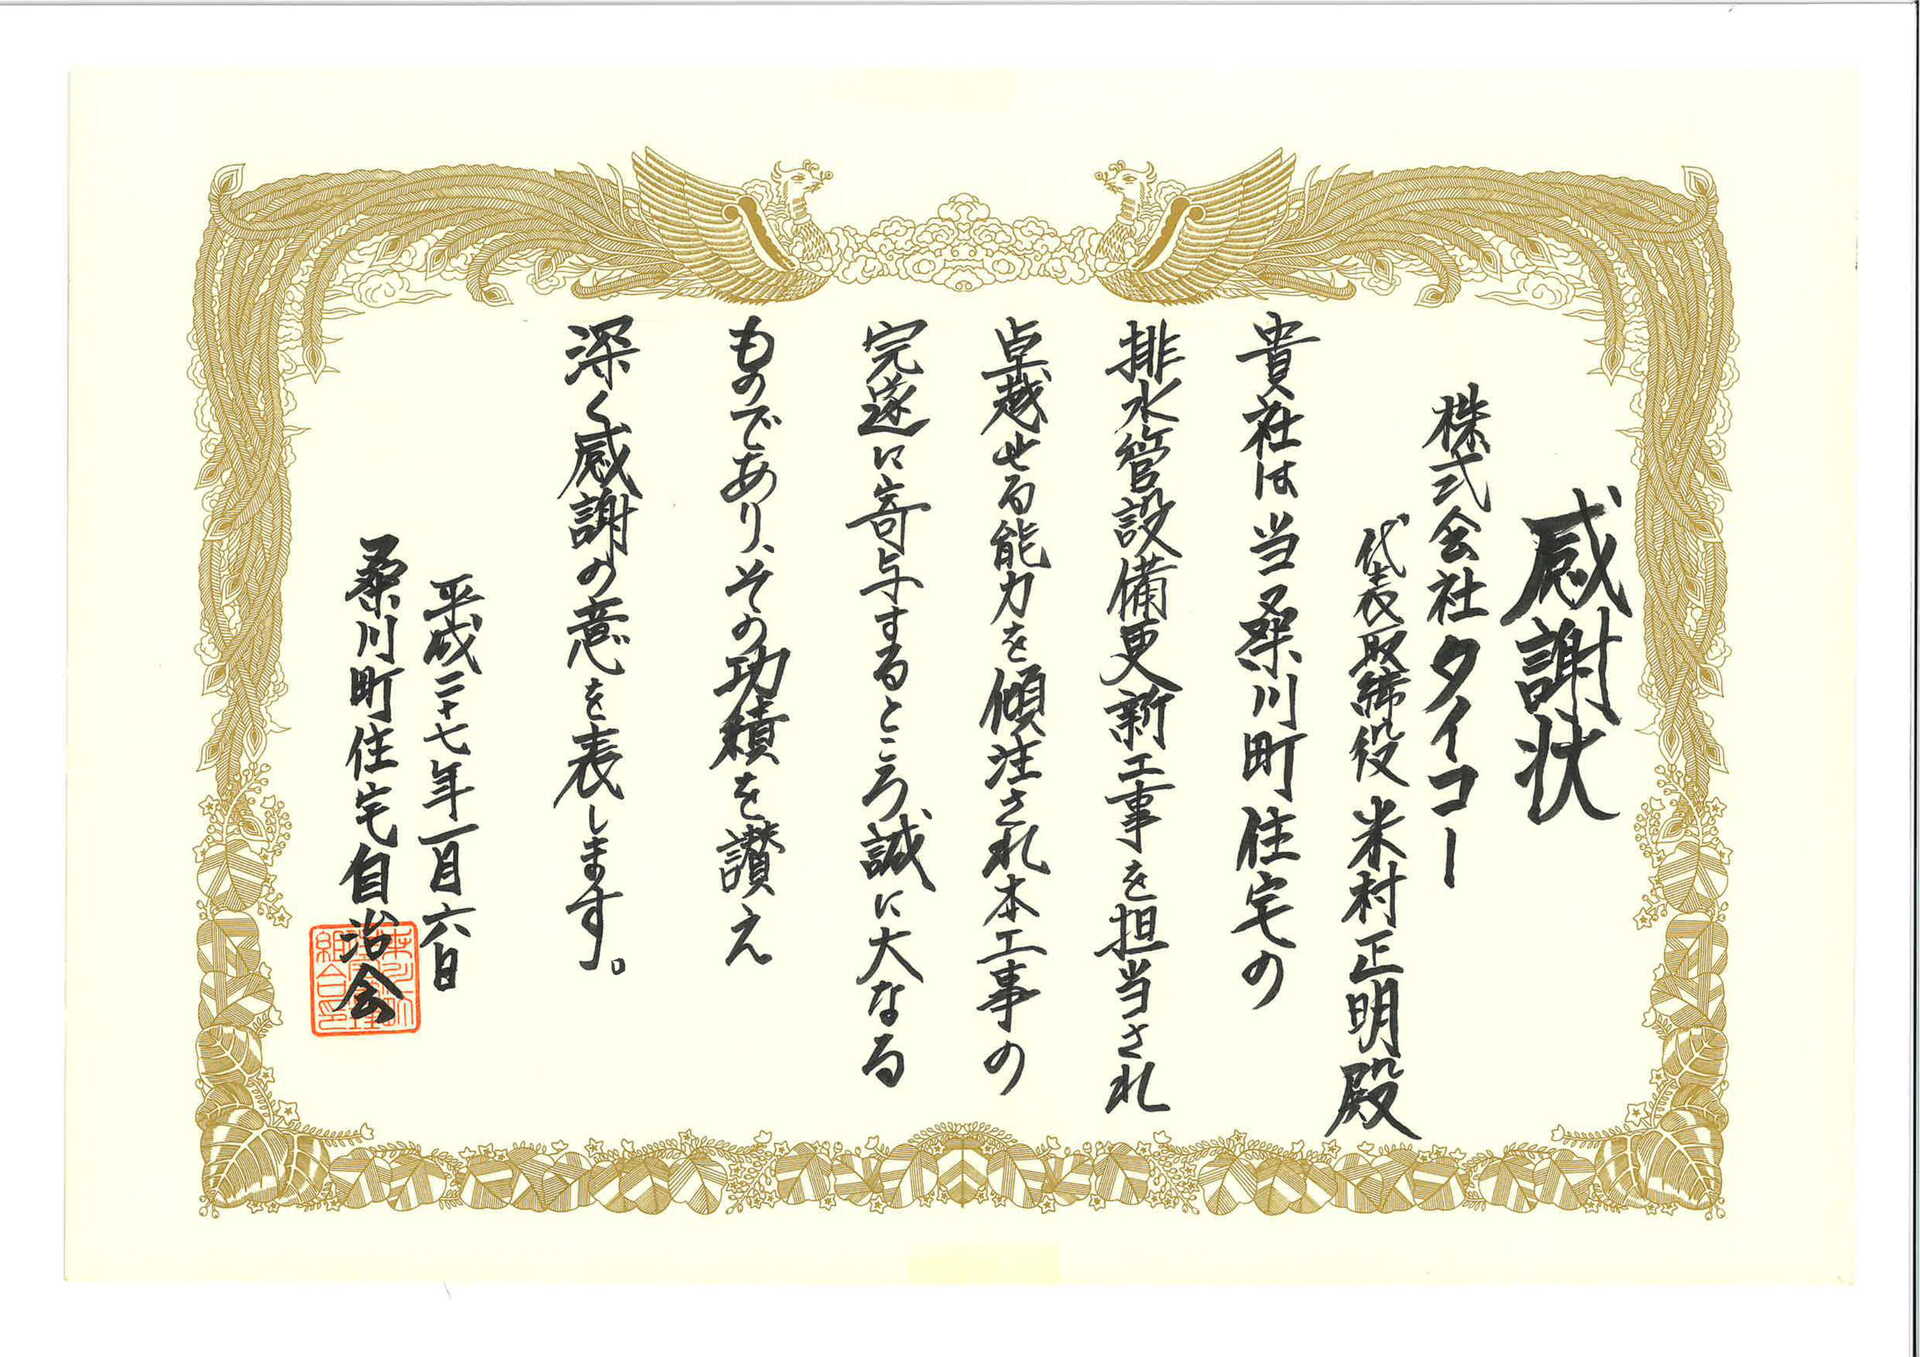 感謝状
株式会社タイコー
代表取締役 米村正明殿
貴社は当桑川町住宅の
排水管設備更新工事を担当され
卓越せる能力を傾注され本工事の
完遂に寄与するところ誠に大なる
ものであり、その功績を讃え
深く感謝の意を表します。
平成二十七年一月六日
桑川町住宅自治会